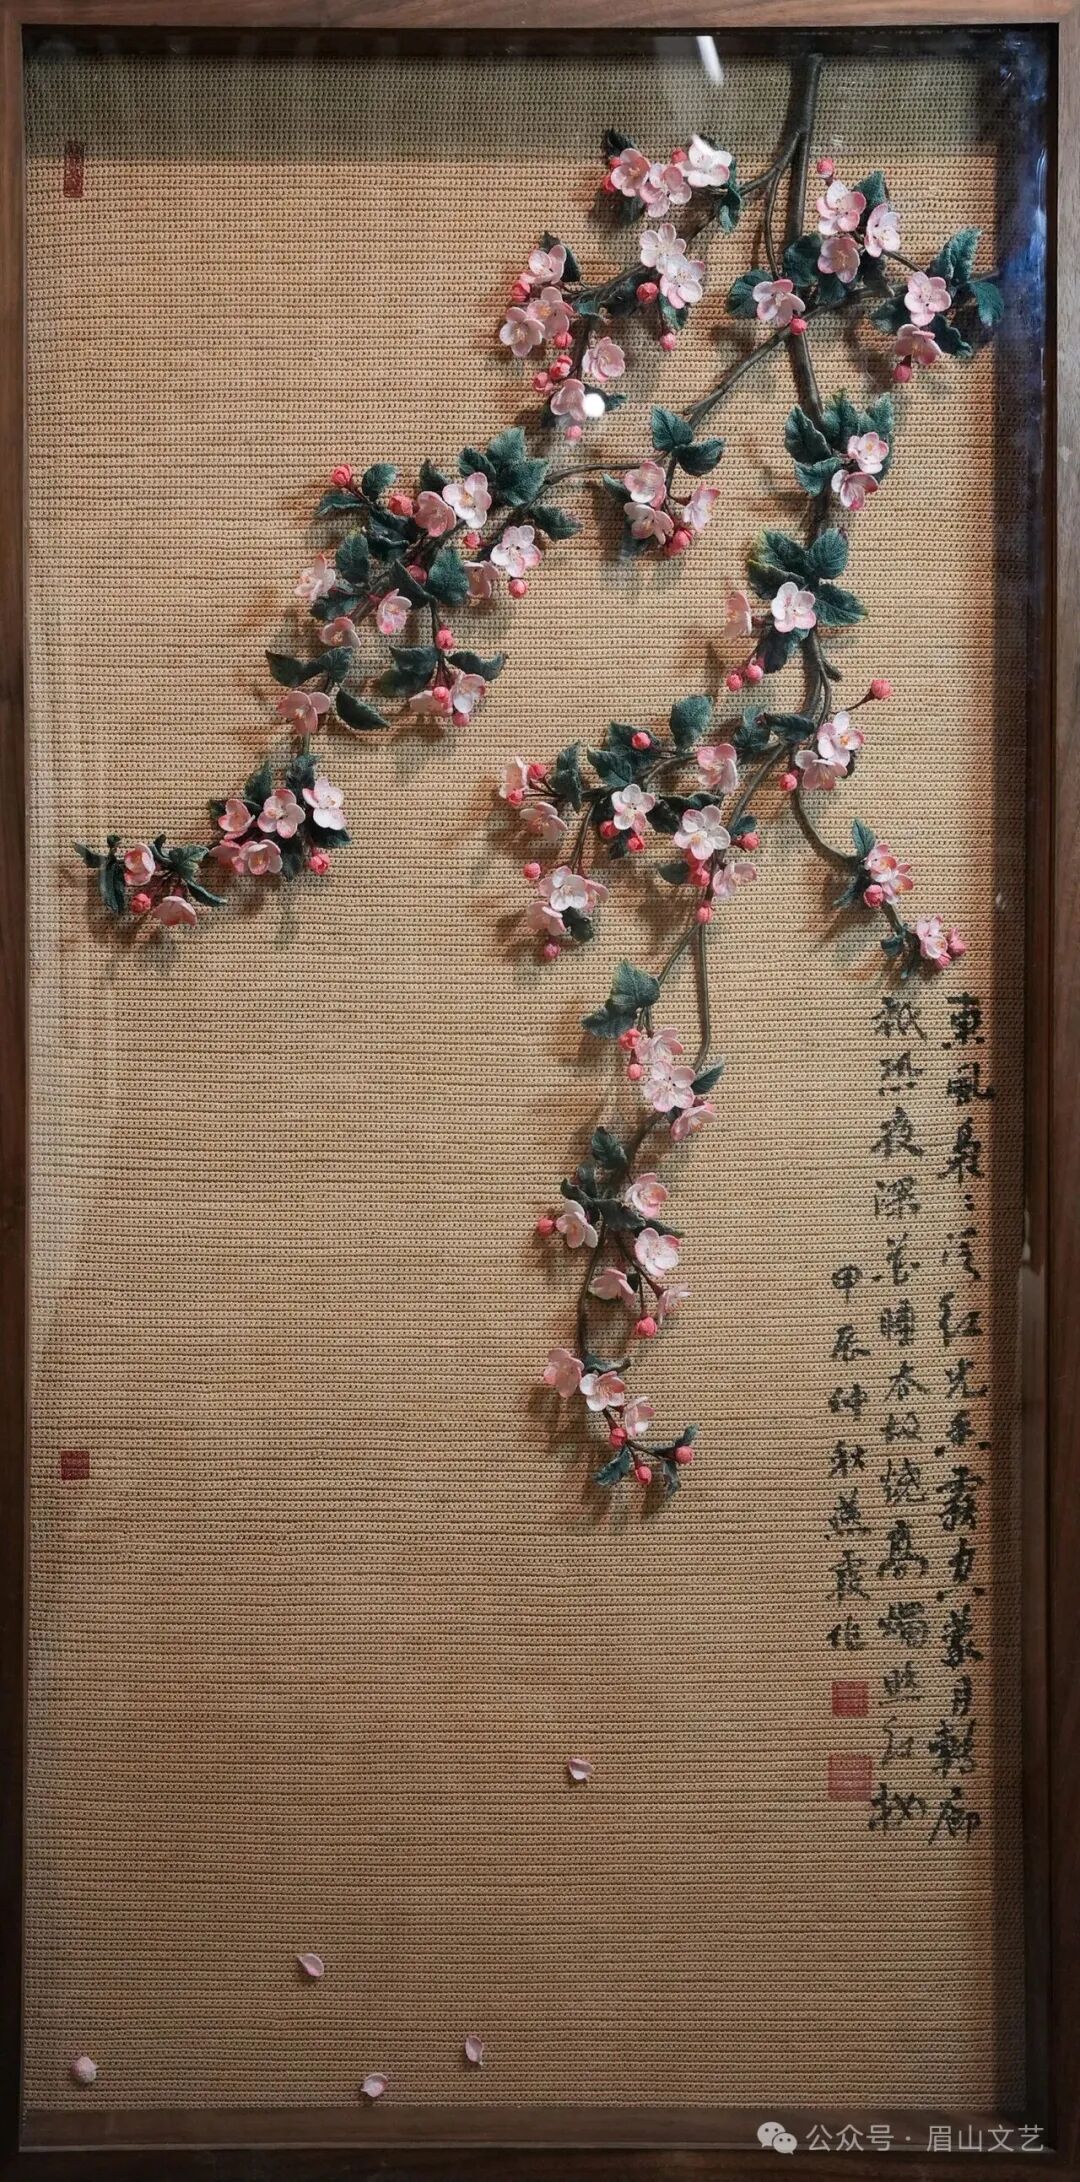 東風裊〻泛紅光香霧空蒙月轉廊
祇恐夜深花睡去故燒高燭照紅妝
甲辰仲秋燕霞作
公众号 · 眉山文艺